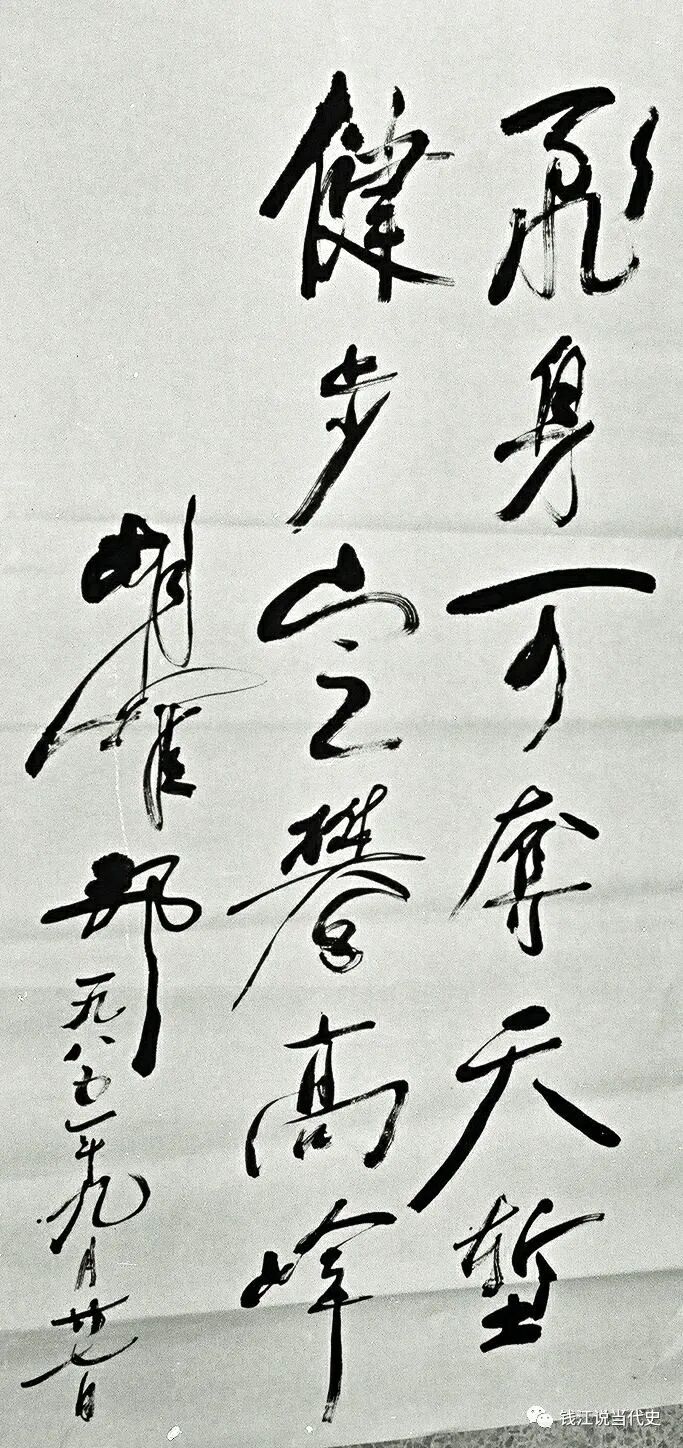 飞身可夺天堑
健步定攀高峰
胡耀邦
一九八五年九月廿七日
钱江说当代史